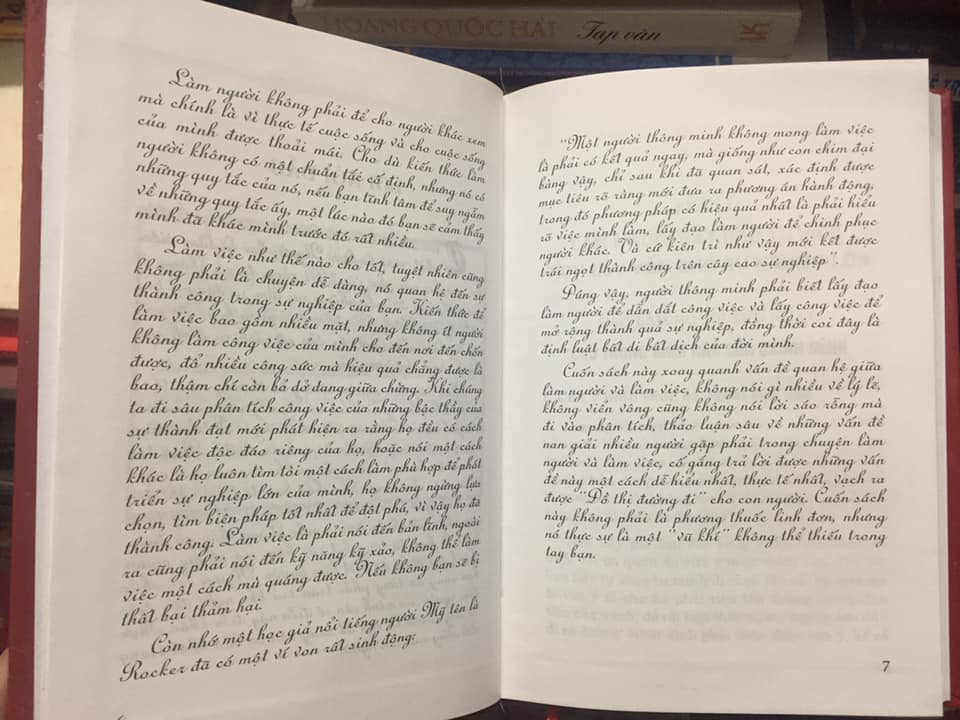 HOÀNG QUỐC HẢI Tạp văn
Làm người không phải để cho người khác xem
mà chính là vì thực tế cuộc sống và cho cuộc sống
của mình được thoải mái. Cho dù kiến thức làm
người không có một chuẩn tắc cố định, nhưng nó có
những quy tắc của nó, nếu bạn tĩnh tâm để suy ngẫm
về những quy tắc ấy, một lúc nào đó bạn sẽ cảm thấy
mình đã khác mình trước đó rất nhiều.
Làm việc như thế nào cho tốt, tuyệt nhiên cũng
không phải là chuyện dễ dàng, nó quan hệ đến sự
thành công trong sự nghiệp của bạn. Kiến thức để
làm việc bao gồm nhiều mặt, nhưng không ít người
không làm công việc của mình cho đến nơi đến chốn
được, đổ nhiều công sức mà hiệu quả chẳng được là
bao, thậm chí còn bỏ dở dang giữa chừng. Khi chúng
ta đi sâu phân tích công việc của những bậc thầy của
sự thành đạt mới phát hiện ra rằng họ đều có cách
làm việc độc đáo riêng của họ, hoặc nói một cách
khác là họ luôn tìm tòi một cách làm phù hợp để phát
triển sự nghiệp lớn của mình, họ không ngừng lựa
chọn, tìm biện pháp tốt nhất để đột phá, vì vậy họ đã
thành công. Làm việc là phải nói đến bản lĩnh, ngoài
ra cũng phải nói đến kỹ năng kỹ xảo, không thể làm
việc một cách mù quáng được. Nếu không bạn sẽ bị
thất bại thảm hại.
Còn nhớ một học giả nổi tiếng người Mỹ tên là
Rocker đã có một ví von rất sinh động:
"Một người thông minh không mong làm việc
là phải có kết quả ngay, mà giống như con chim đại
bàng vậy, chỉ sau khi đã quan sát, xác định được
mục tiêu rõ ràng mới đưa ra phương án hành động,
trong đó phương pháp có hiệu quả nhất là phải hiểu
rõ việc mình làm, lấy đạo làm người để chinh phục
người khác. Và cứ kiên trì như vậy mới kết được
trái ngọt thành công trên cây cao sự nghiệp".
Đúng vậy, người thông minh phải biết lấy đạo
làm người để dẫn dắt công việc và lấy công việc để
mở rộng thành quả sự nghiệp, đồng thời coi đây là
định luật bất di bất dịch của đời mình.
Cuốn sách này xoay quanh vấn đề quan hệ giữa
làm người và làm việc, không nói gì nhiều về lý lẽ,
không viển vông cũng không nói lời sáo rỗng mà
đi vào phân tích, thảo luận sâu về những vấn đề
nan giải nhiều người gặp phải trong chuyện làm
người và làm việc, cố gắng trả lời được những vấn
đề này một cách dễ hiểu nhất, thực tế nhất, vạch ra
được "Đồ thị đường đi" cho con người. Cuốn sách
này không phải là phương thuốc linh đơn, nhưng
nó thực sự là một "vũ khí" không thể thiếu trong
tay bạn.
7